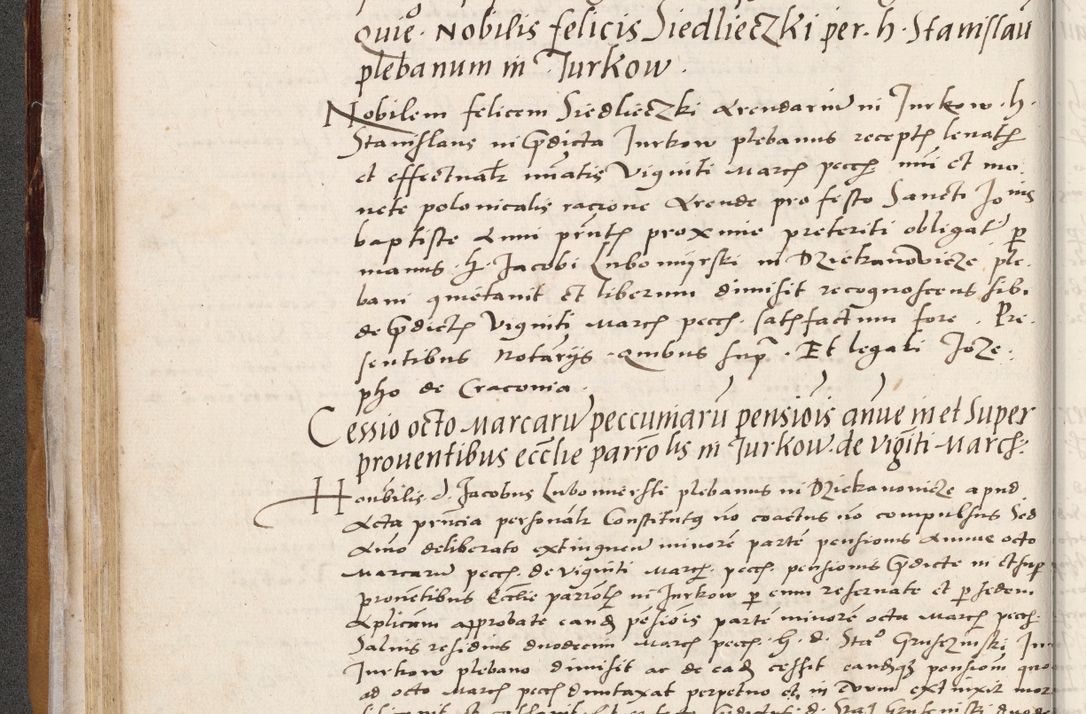 quie. Nobilis felicis Siedlieczki per. h. Stanislau
plebanum in Jurkow.
Nobilem felicem Siedlieczki Arendariũ in Jurkow. h.
Stanislaus in p̃dicta Jurkow plebanus
et effectualr Viginti March pecch et mo
nete polonicalis racione Arende pro festo Sancti Jo nis
baptiste Anni pñtis proxime preteriti obligat̃ p
manus. h. Jacobi Lubomyrski in Dziekanowicze ple.
bani quietauit et liberum dimisit recognoscens sibi
de p̃dictis Viginti March pecch. satisfactum fore. Pre
sentibus Notarijs quibus sup̃. Et legali Joze.
pho de Craconia.
Cessio octo Marcarũ peccuniarũ pensiois anue in et super
prouentibus ecclie parrolis in Jurkow. de viginti March.
Honbilis d. Jacobus Lubomierski plebanus in Dziekanowicze apud
Acta personalr Constitutus nõ coactus nõ compulsus Sed
Aĩo deliberato extinguen minorẽ partẽ pensionis Annue octo
Marcarũ pecch. de viginti March. pecch. pensionis p̃dicte in et sup
prouẽtibus Ecclie parroch in Jurkow p eum reseruate et p sedem
Aplicam approbate eand pẽsiois partẽ minorẽ octo March pecch.
Saluis residuis duodecim March pecch. h. d. Stão Gruszinski In
Jurkow plebano dimisit ac de eadẽ cessit pensionẽ quo
ad octo March pecch duntaxat perpetuo et in Evum extinxit mor